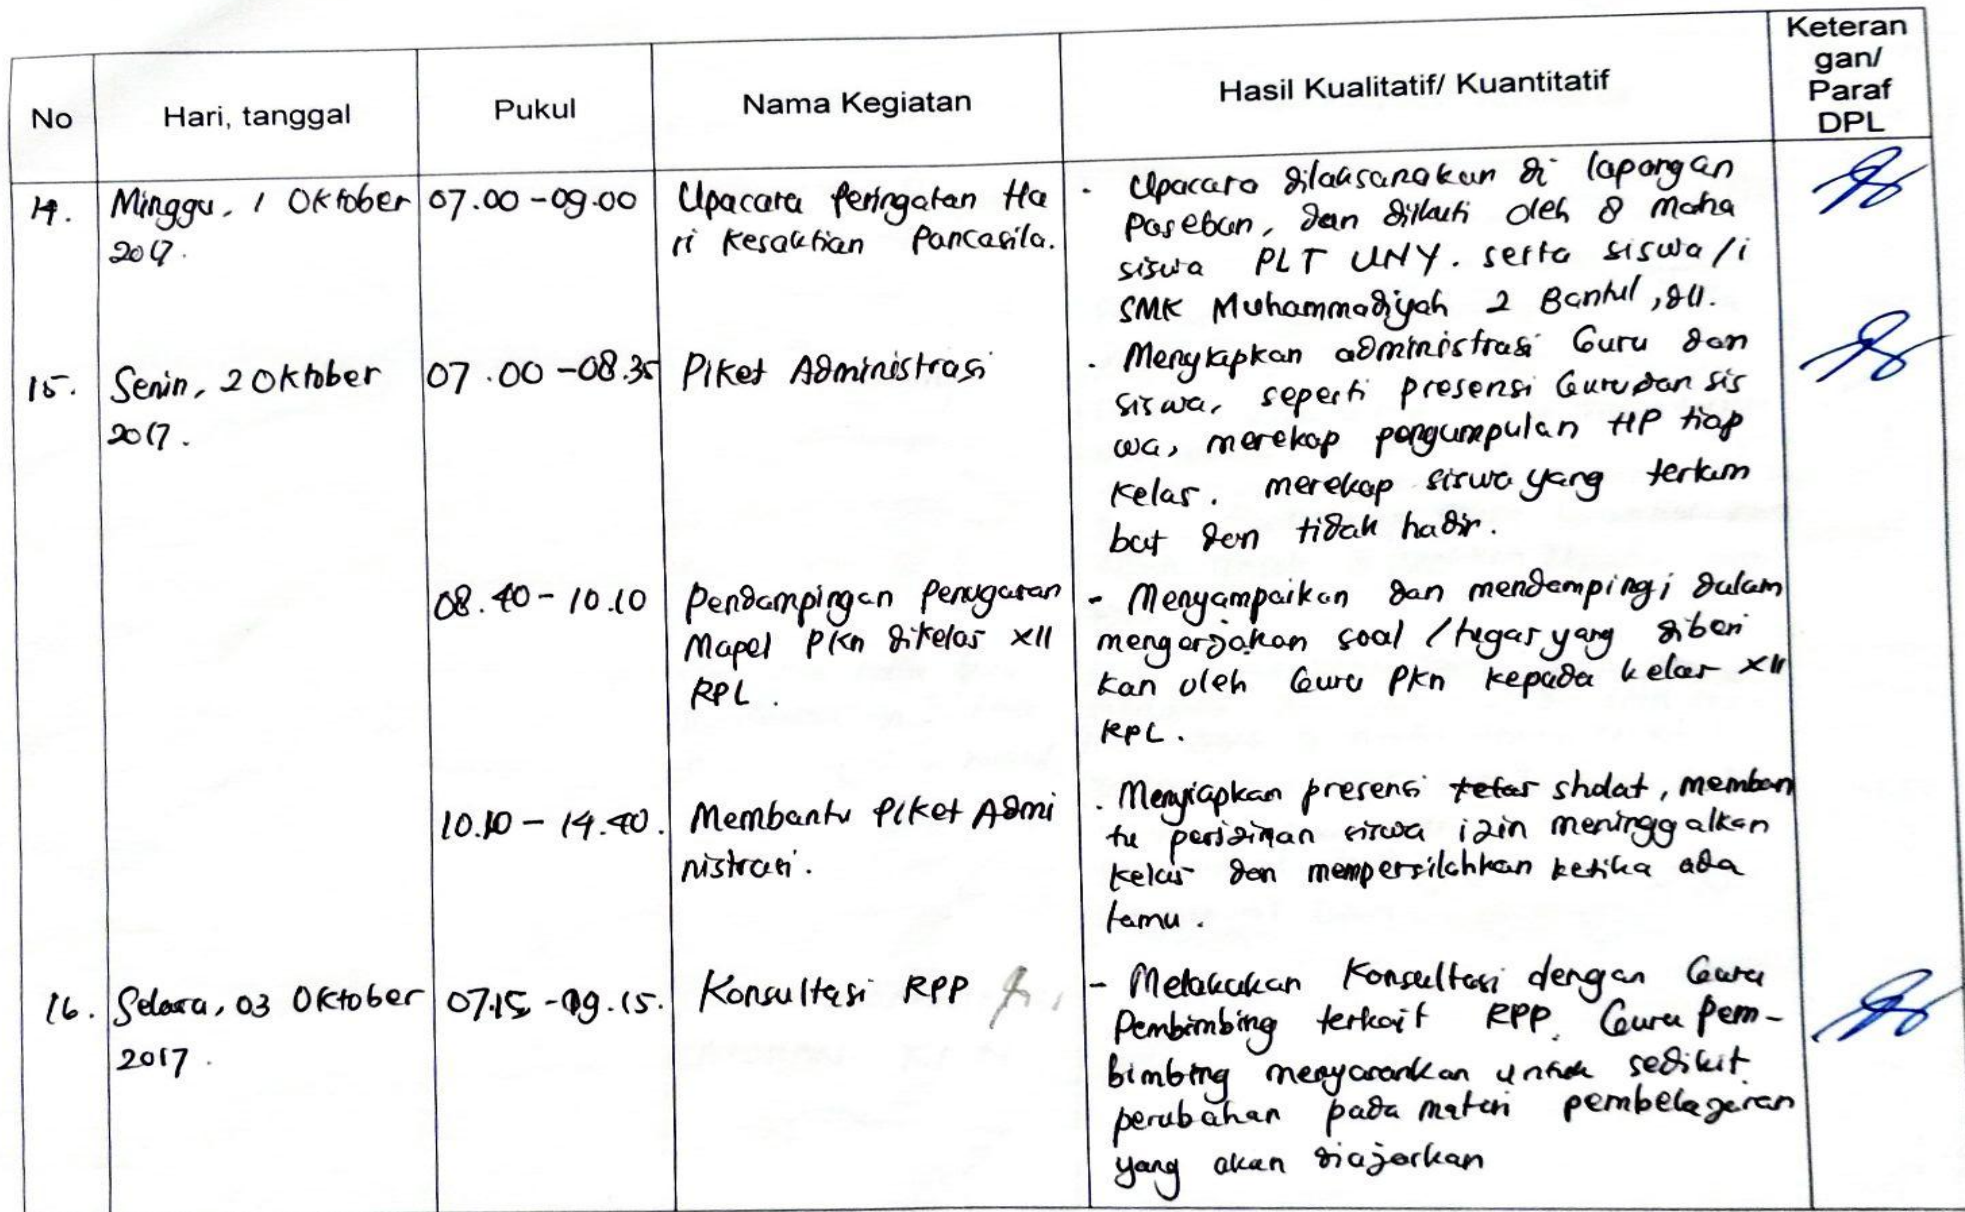 No
Hari, tanggal
Pukul
Nama Kegiatan
Hasil Kualitatif/ Kuantitatif
Keteran
gan/
Paraf
DPL
14.
Minggu, 1 Oktober
2017.
07.00 - 09.00
Upacara Peringatan Ha
ri Kesaktian Pancasila.
- Upacara dilaksanakan di lapangan
Paseban, dan diikuti oleh 8 maha
siswa PLT UNY. serta siswa/i
SMK Muhammadiyah 2 Bantul, dll.
15.
Senin, 2 Oktober
2017.
07.00 - 08.35
Piket Administrasi
- Menyiapkan administrasi Guru dan
siswa, seperti presensi Guru dan sis
wa, merekap pengumpulan HP tiap
Kelas. merekap siswa yang terlam
bat dan tidak hadir.
08.40 - 10.10
Pendampingan Penugasan
Mapel PKn dikelas XII
RPL.
- Menyampaikan dan mendampingi dalam
mengerjakan soal / tugas yang diberi
kan oleh Guru PKn kepada kelas XII
RPL.
10.10 - 14.40.
Membantu Piket Admi
nistrasi.
- Menyiapkan presensi sholat, memban
tu perizinan siswa izin meninggalkan
kelas dan mempersilahkan ketika ada
tamu.
16.
Selasa, 03 Oktober
2017.
07.15 - 09.15.
Konsultasi RPP
- Melakukan Konsultasi dengan Guru
Pembimbing terkait RPP. Guru Pem-
bimbing menyarankan untuk sedikit
perubahan pada materi pembelajaran
yang akan diajarkan